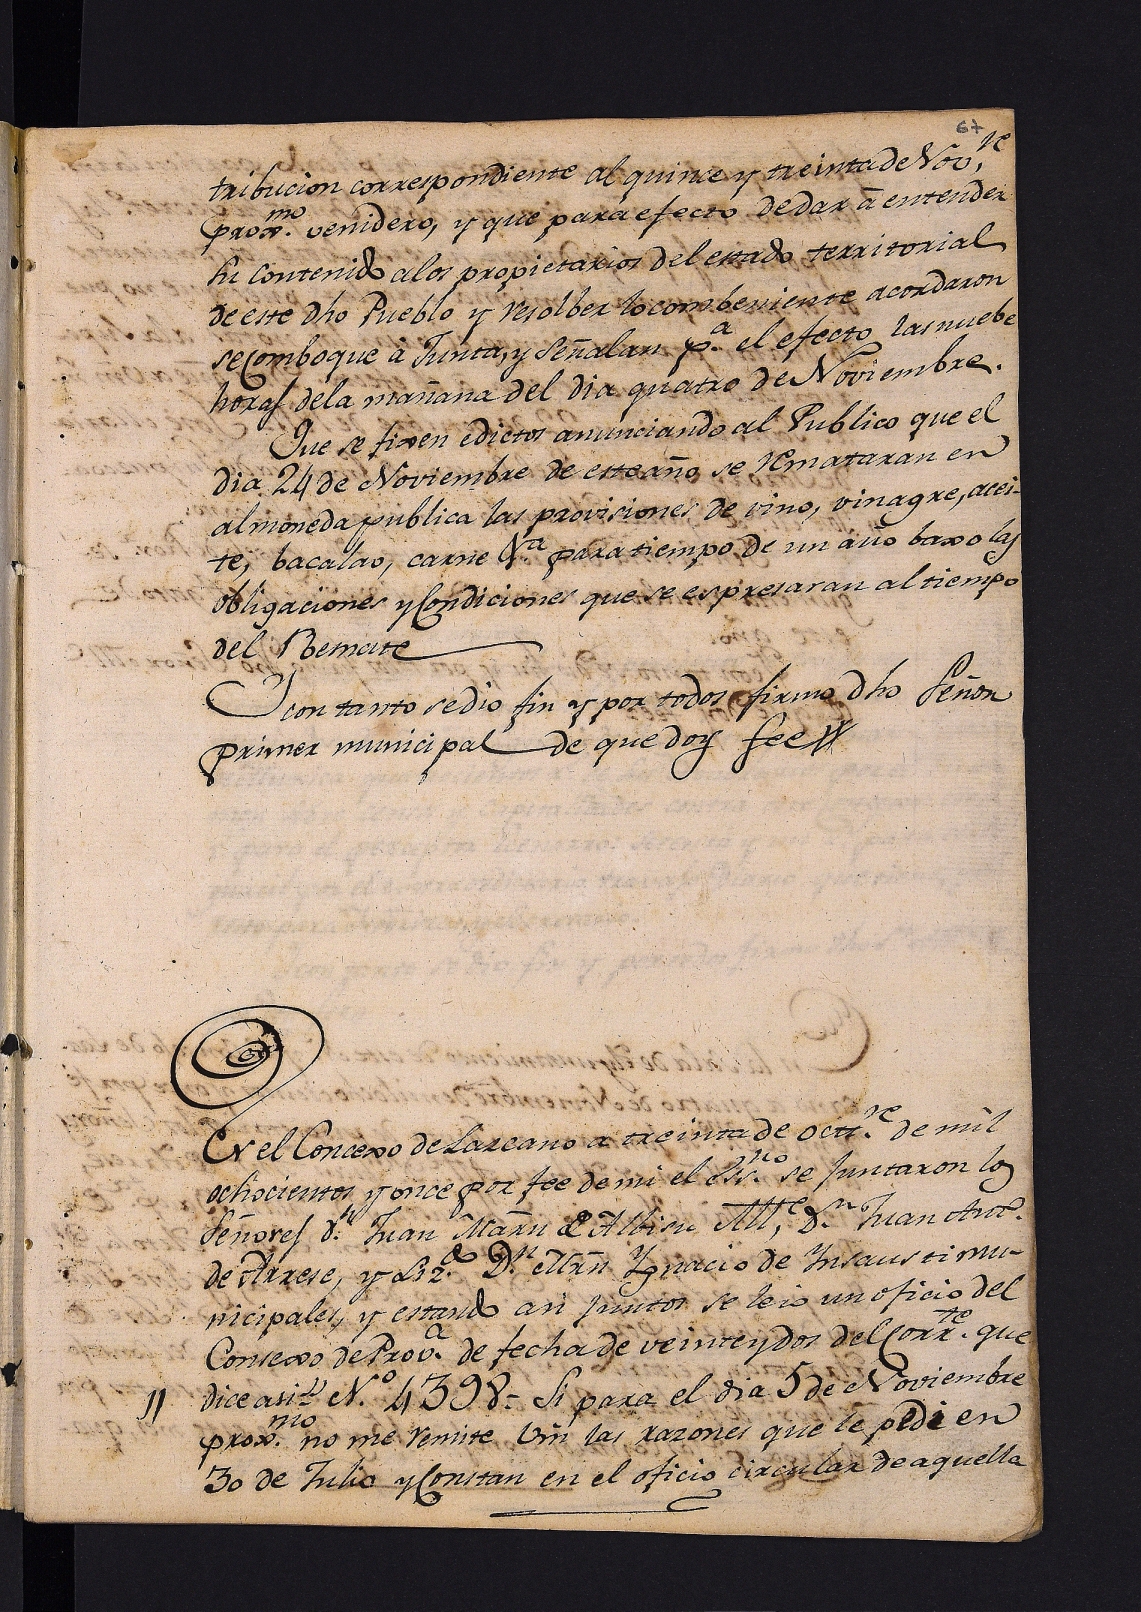 67
tribucion correspondiente al quince y treinta de Nov.re
prox.mo venidero, y que para efecto de dar â entender
su contenido a los propietarios del estado territorial
de este dho Pueblo y resolber lo combeniente acordaron
se comboque à Junta, y señalan p.a el efecto las nuebe
horas de la mañana del dia quatro de Noviembre.
Que se fixen edictos anunciando al Publico que el
dia 24 de Noviembre de este año se remataran en
almoneda publica las provisiones de vino, vinagre, acei-
te, bacalao, carne &.a para tiempo de un año baxo las
obligaciones y Condiciones que se espresaran al tiempo
del Remate
Y con tanto se dio fin y por todos firmo dho Señor
primer municipal de que doy fee
En el Concexo de Lazcano a treinta de oct.re de mil
ochocientos y once por fee de mi el Ess.no se juntaron los
Señores d.n Juan Marn de Albisu d.n Juan
de Arrese, y Liz.do D.n Mrn Ygnacio de Ynsausti mu-
nicipales, y estando asi juntos se leio un oficio del
Consexo de Prov.a de fecha de veinte y dos del Corr.te que
" dice asi = N.o 4398 = Si para el dia 5 de Noviembre
prox.mo no me remite Vm las razones que le pedi en
30 de Julio y Constan en el oficio circular de aquella